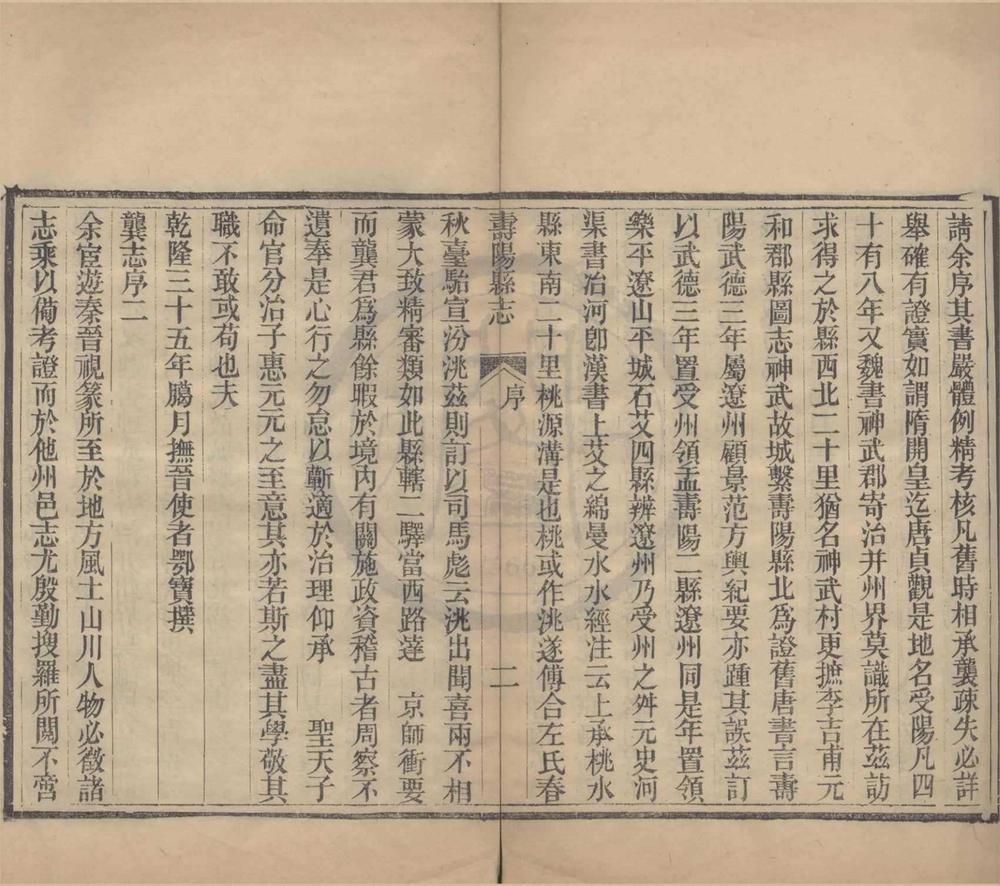 請余序其書嚴體例精考核凡舊時相承襲疎失必詳
舉確有證實如謂隋開皇迄唐貞觀是地名受陽凡四
十有八年又魏書神武郡寄治并州界莫識所在茲訪
求得之於縣西北二十里猶名神武村更摭李吉甫元
和郡縣圖志神武故城繫壽陽縣北爲證舊唐書言壽
陽武德三年屬遼州顧景范方輿紀要亦踵其誤茲訂
以武德三年置受州領盂壽陽二縣遼州同是年置領
樂平遼山平城石艾四縣辨遼州乃受州之舛元史河
渠書冶河卽漢書上艾之綿曼水水經注云上承桃水
縣東南二十里桃源溝是也桃或作洮遂傅合左氏春
壽陽縣志 序 二
秋臺駘宣汾洮茲則訂以司馬彪云洮出聞喜兩不相
蒙大致精審類如此縣轄二驛當西路達 京師衝要
而龔君爲縣餘暇於境內有關施政資稽古者周察不
遺奉是心行之勿怠以蘄適於治理仰承 聖天子
命官分治子惠元元之至意其亦若斯之盡其學敬其
職不敢或苟也夫
乾隆三十五年臈月撫晉使者鄂寶撰
龔志序二
余宦遊秦晉視篆所至於地方風土山川人物必徵諸
志乘以備考證而於他州邑志尤殷勤搜羅所閱不啻